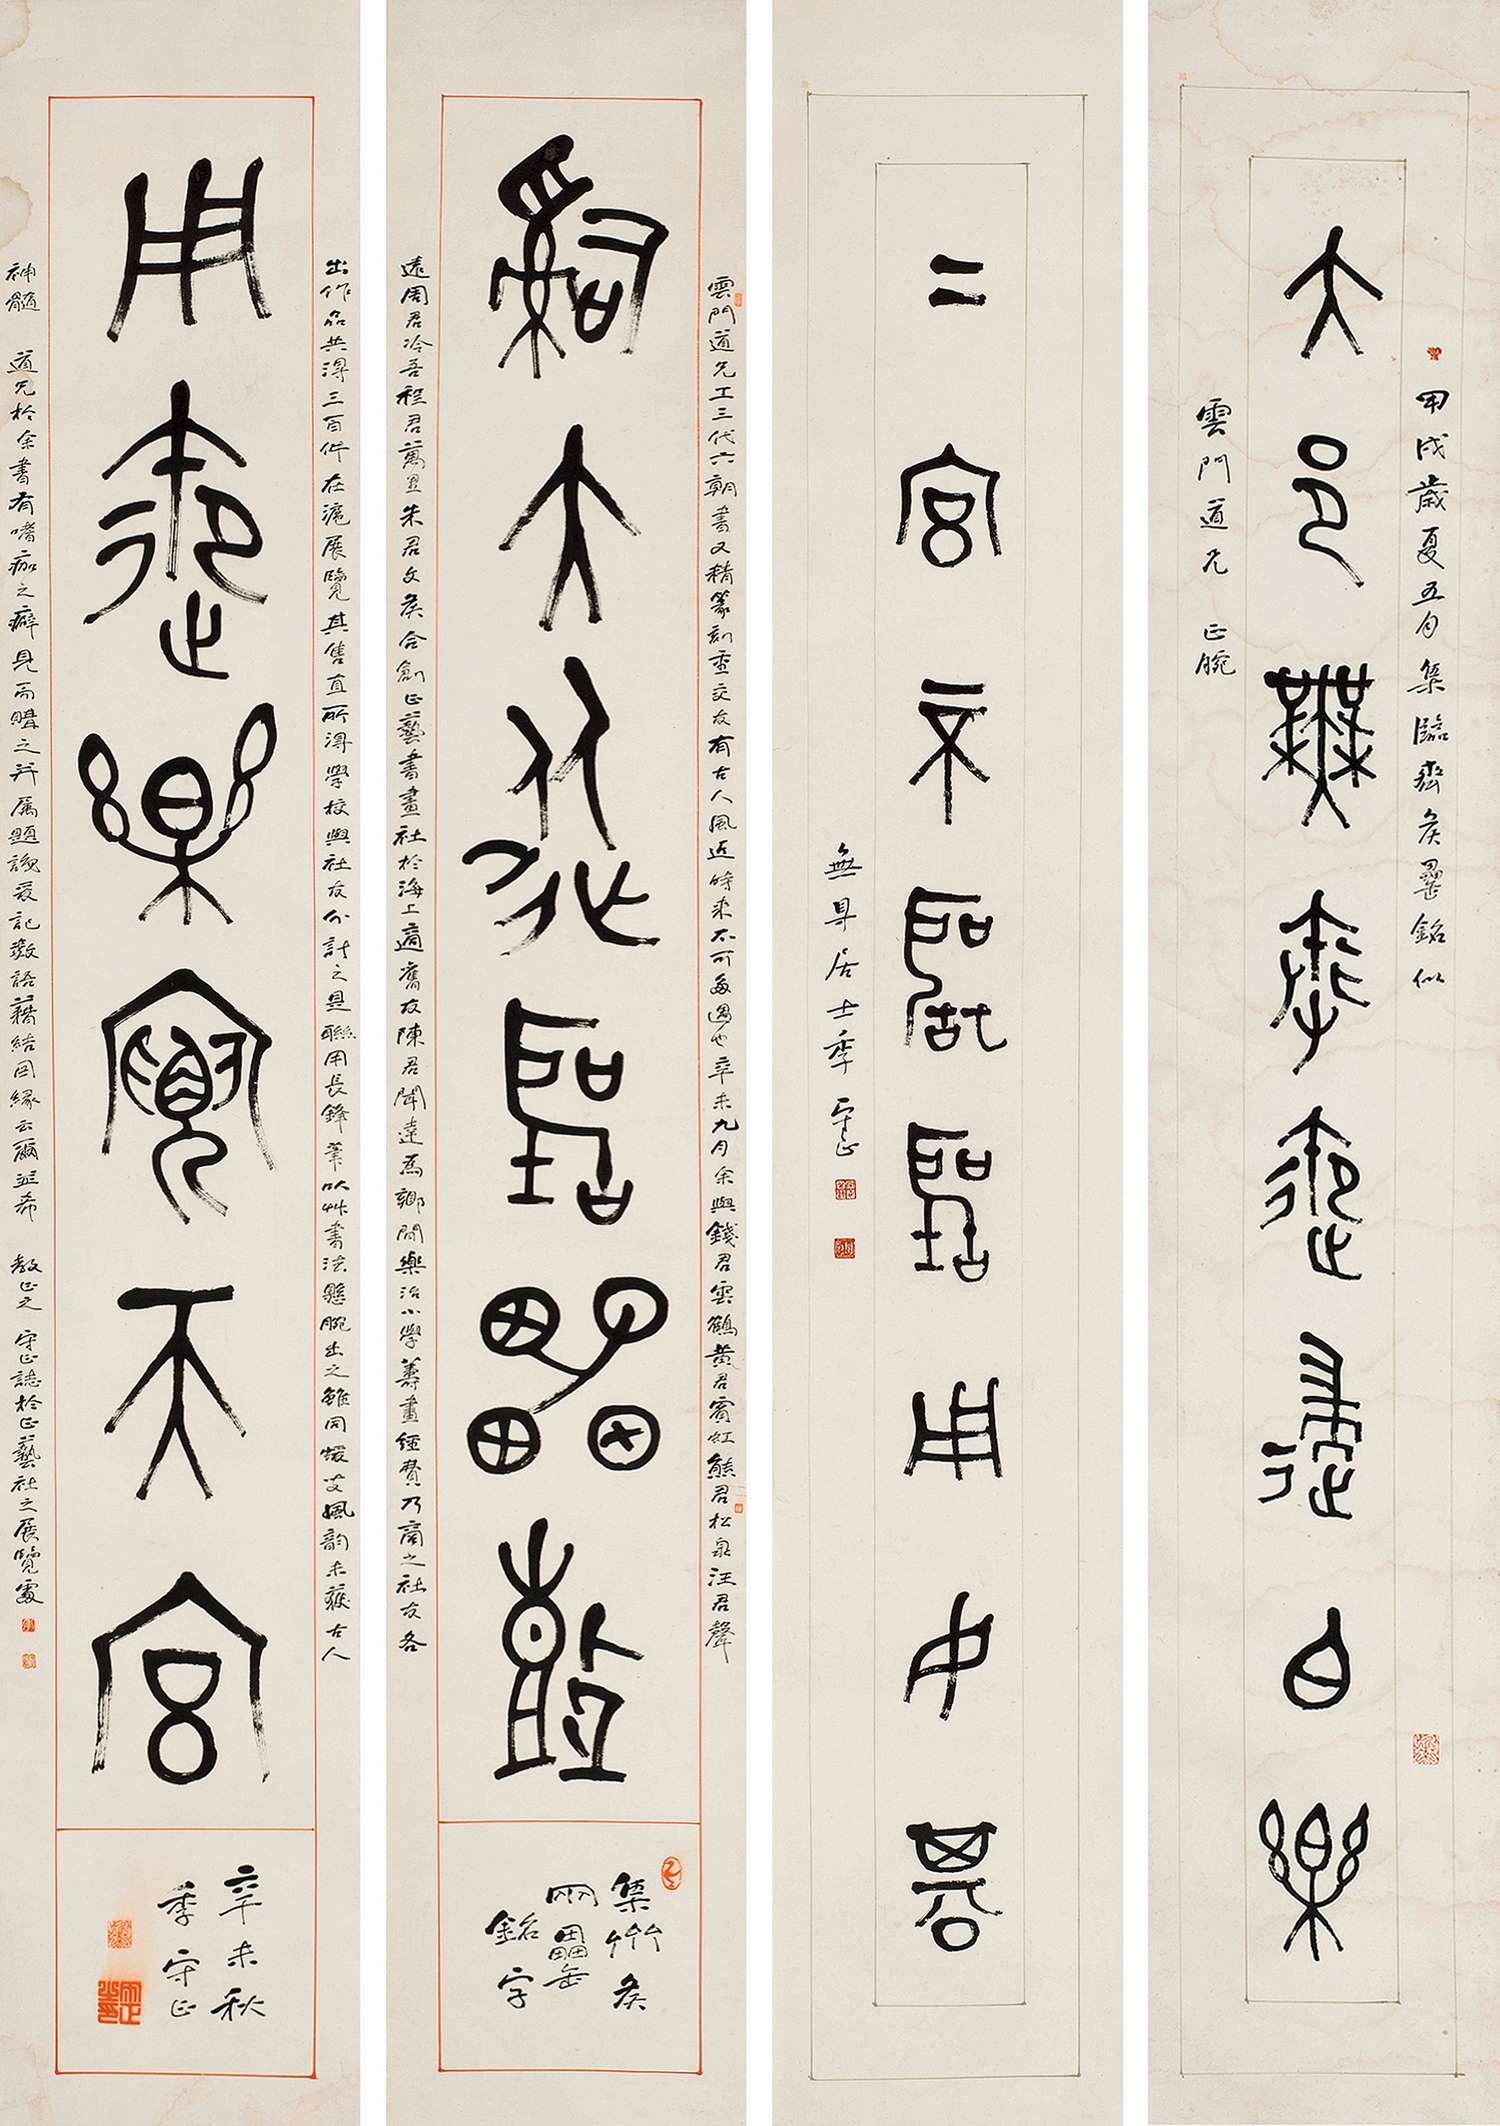 甲戌歲夏五月集臨齊侯罍銘似
大邑無奉御歸白樂
雲門道兄 正腕
二宮
用中
無尋居士季守正
雲門道兄工三代六朝書又精篆刻重交友有古人風近時來不可多遇也辛未九月余與錢君雲鶴黃君賓虹熊君松泉汪君聲
嗣大
聖
集齊侯
兩罍缶
銘字
遠周君冷吾程君萬里朱君文侯合創正藝書畫社於海上適舊友陳君聞達為鄉間樂治小學籌畫經費乃商之社友各
出作品共得三百件在滬展覽其售直所得學校與社友分計之是聯用長鋒筆以艸書法懸腕出之雖同 風韵未蘊古人
用御樂寶天宮
辛未秋
季守正
神髓 道兄於余書有嗜痂之癖見而購之并屬題識爰記數語藉結因緣云爾並希 教正之 守正誌於正藝社之展覽處